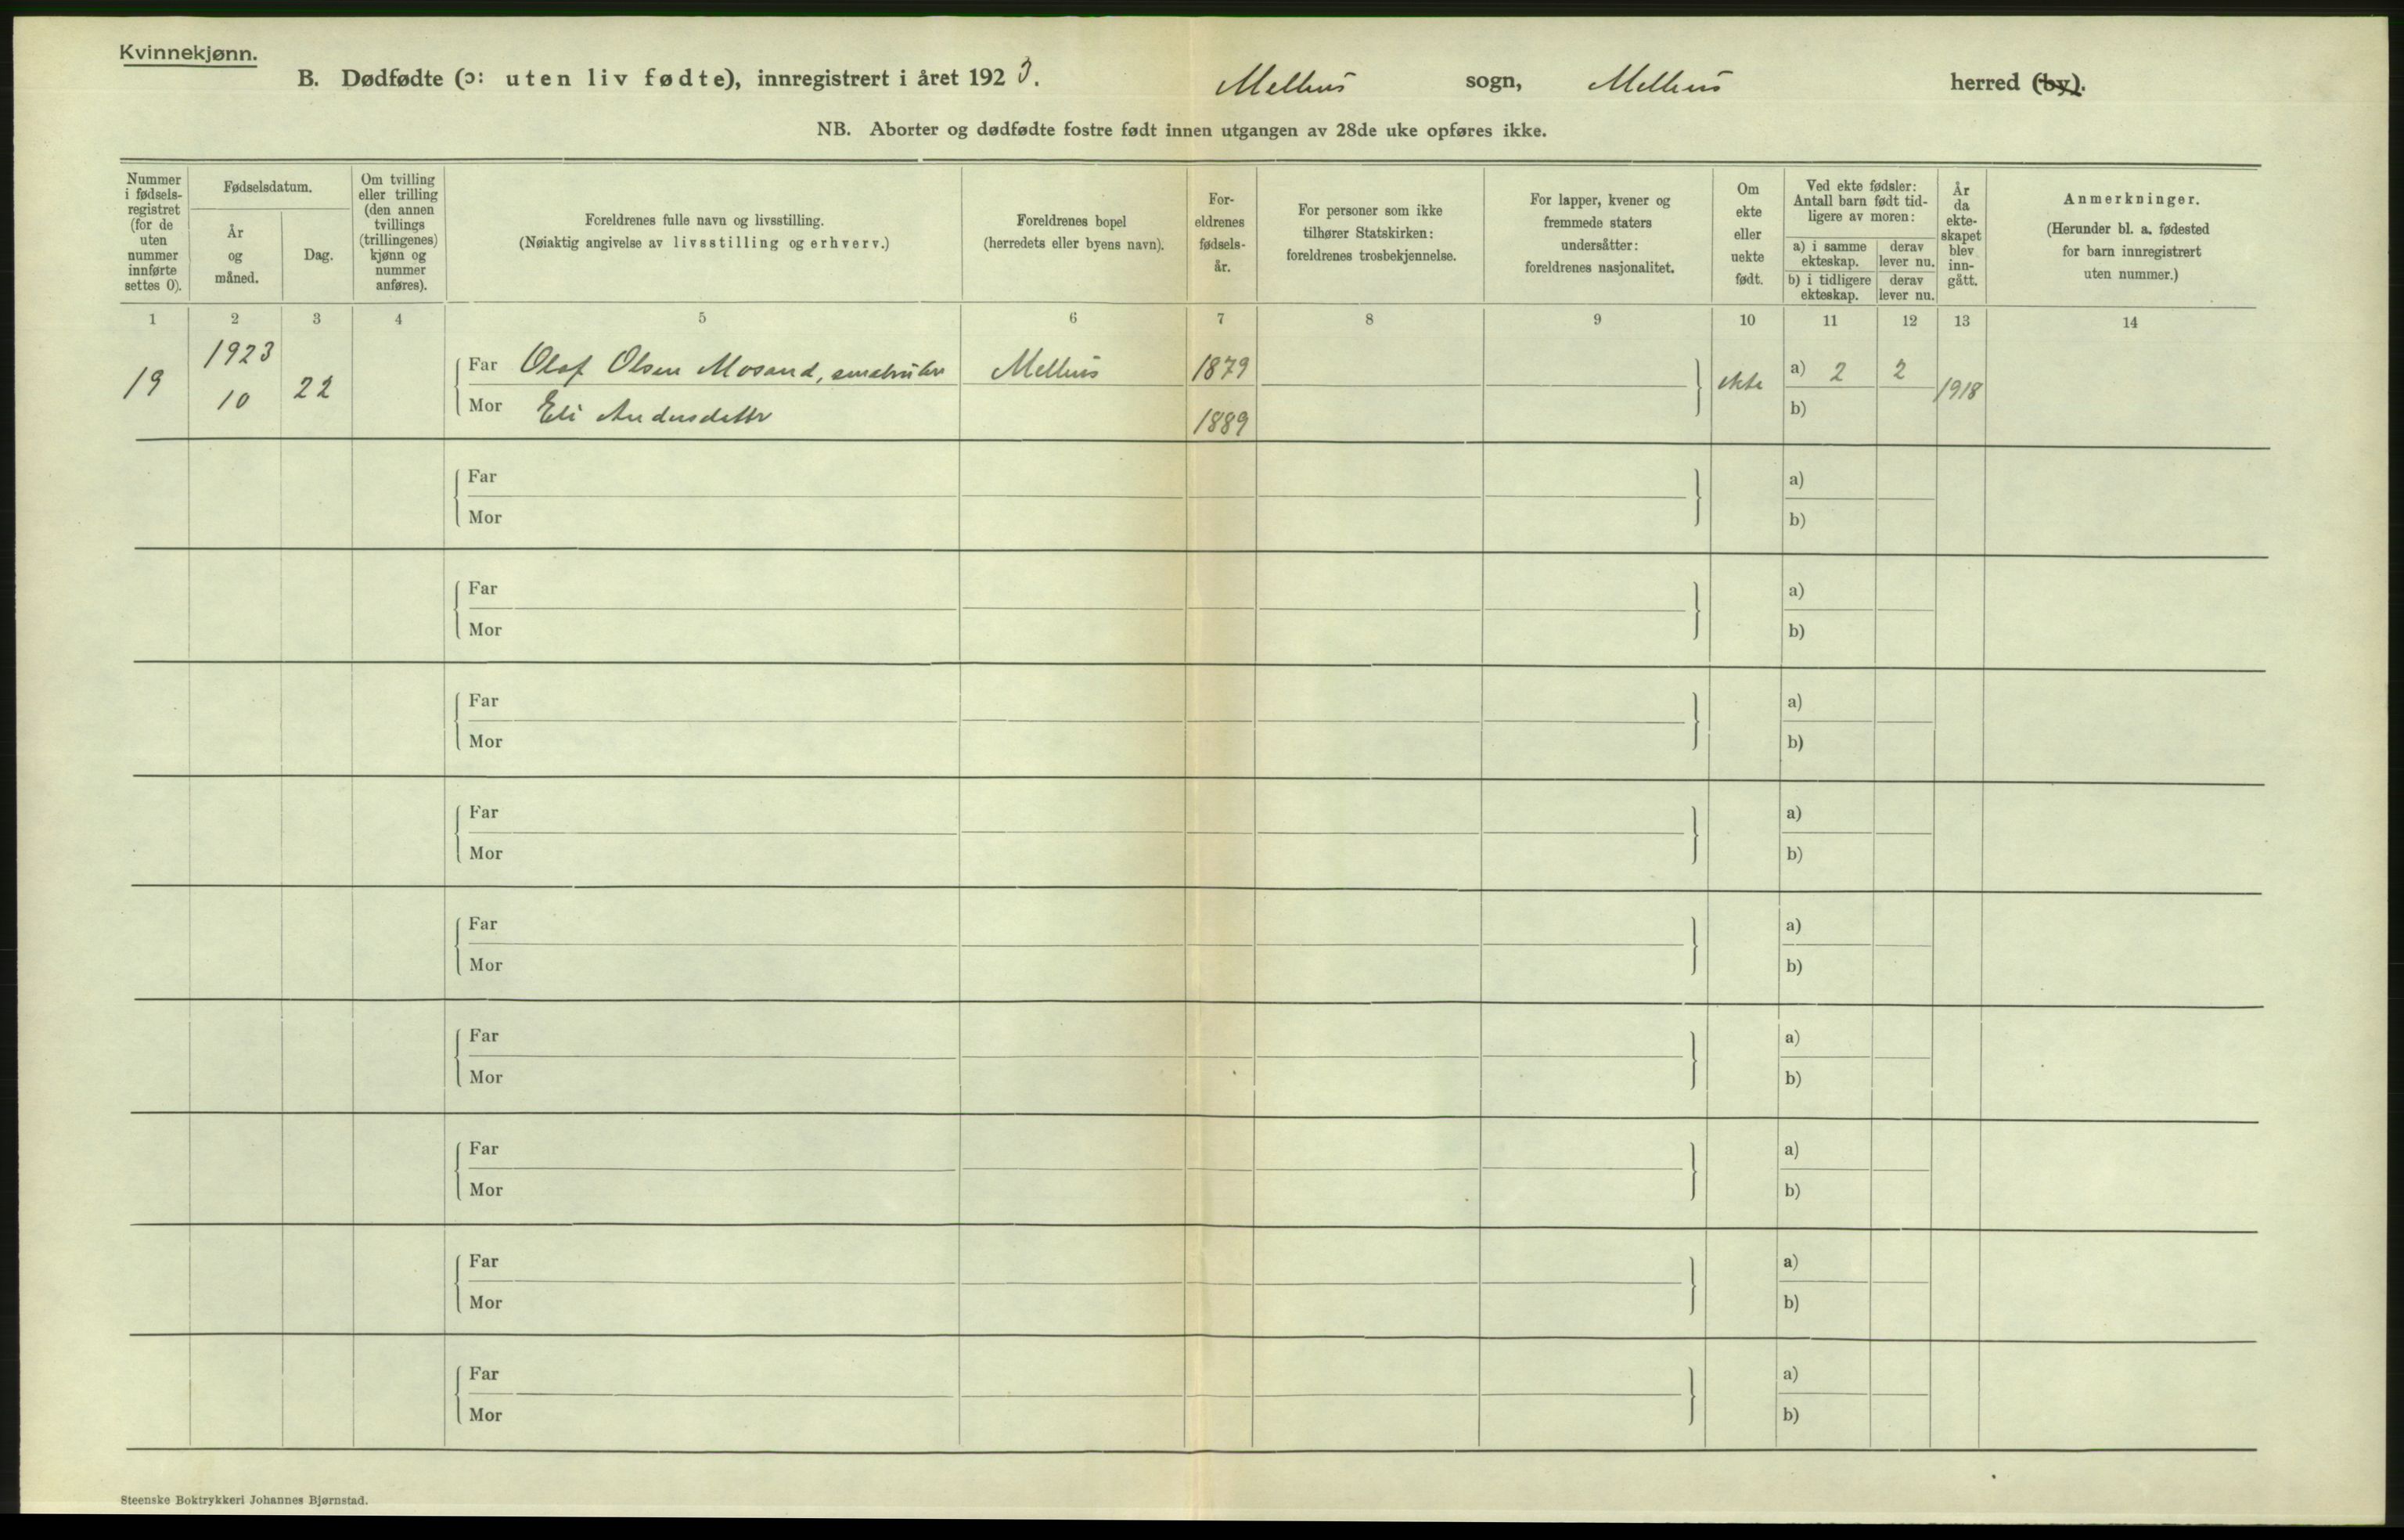 Kvinnekjønn.
B. Dødfødte (ɔ: uten liv fødte), innregistrert i året 1923. Melhus sogn, Melhus herred (by).
NB. Aborter og dødfødte fostre født innen utgangen av 28de uke opføres ikke.
Nummer i fødsels-registret (for de uten nummer innførte settes 0).
Fødselsdatum.
År og måned.
Dag.
Om tvilling eller trilling (den annen tvillings (trillingenes) kjønn og nummer anføres).
Foreldrenes fulle navn og livsstilling.
(Nøiaktig angivelse av livsstilling og erhverv.)
Foreldrenes bopel
(herredets eller byens navn).
For-eldrenes fødsels-år.
For personer som ikke tilhører Statskirken: foreldrenes trosbekjennelse.
For lapper, kvener og fremmede staters undersåtter: foreldrenes nasjonalitet.
Om ekte eller uekte født.
Ved ekte fødsler: Antall barn født tid-ligere av moren:
a) i samme ekteskap.
derav lever nu.
b) i tidligere ekteskap.
derav lever nu.
År da ekte-skapet blev inn-gått.
Anmerkninger.
(Herunder bl. a. fødested for barn innregistrert uten nummer.)
1 2 3 4 5 6 7 8 9 10 11 12 13 14
19 1923 10 22
Far Olaf Olsen Mosand, småbruker Melhus 1879 ekte a) 2 2 1918
Mor Eli Andersdattr 1889 b)
Far a)
Mor b)
Far a)
Mor b)
Far a)
Mor b)
Far a)
Mor b)
Far a)
Mor b)
Far a)
Mor b)
Far a)
Mor b)
Far a)
Mor b)
Far a)
Mor b)
Steenske Boktrykkeri Johannes Bjørnstad.